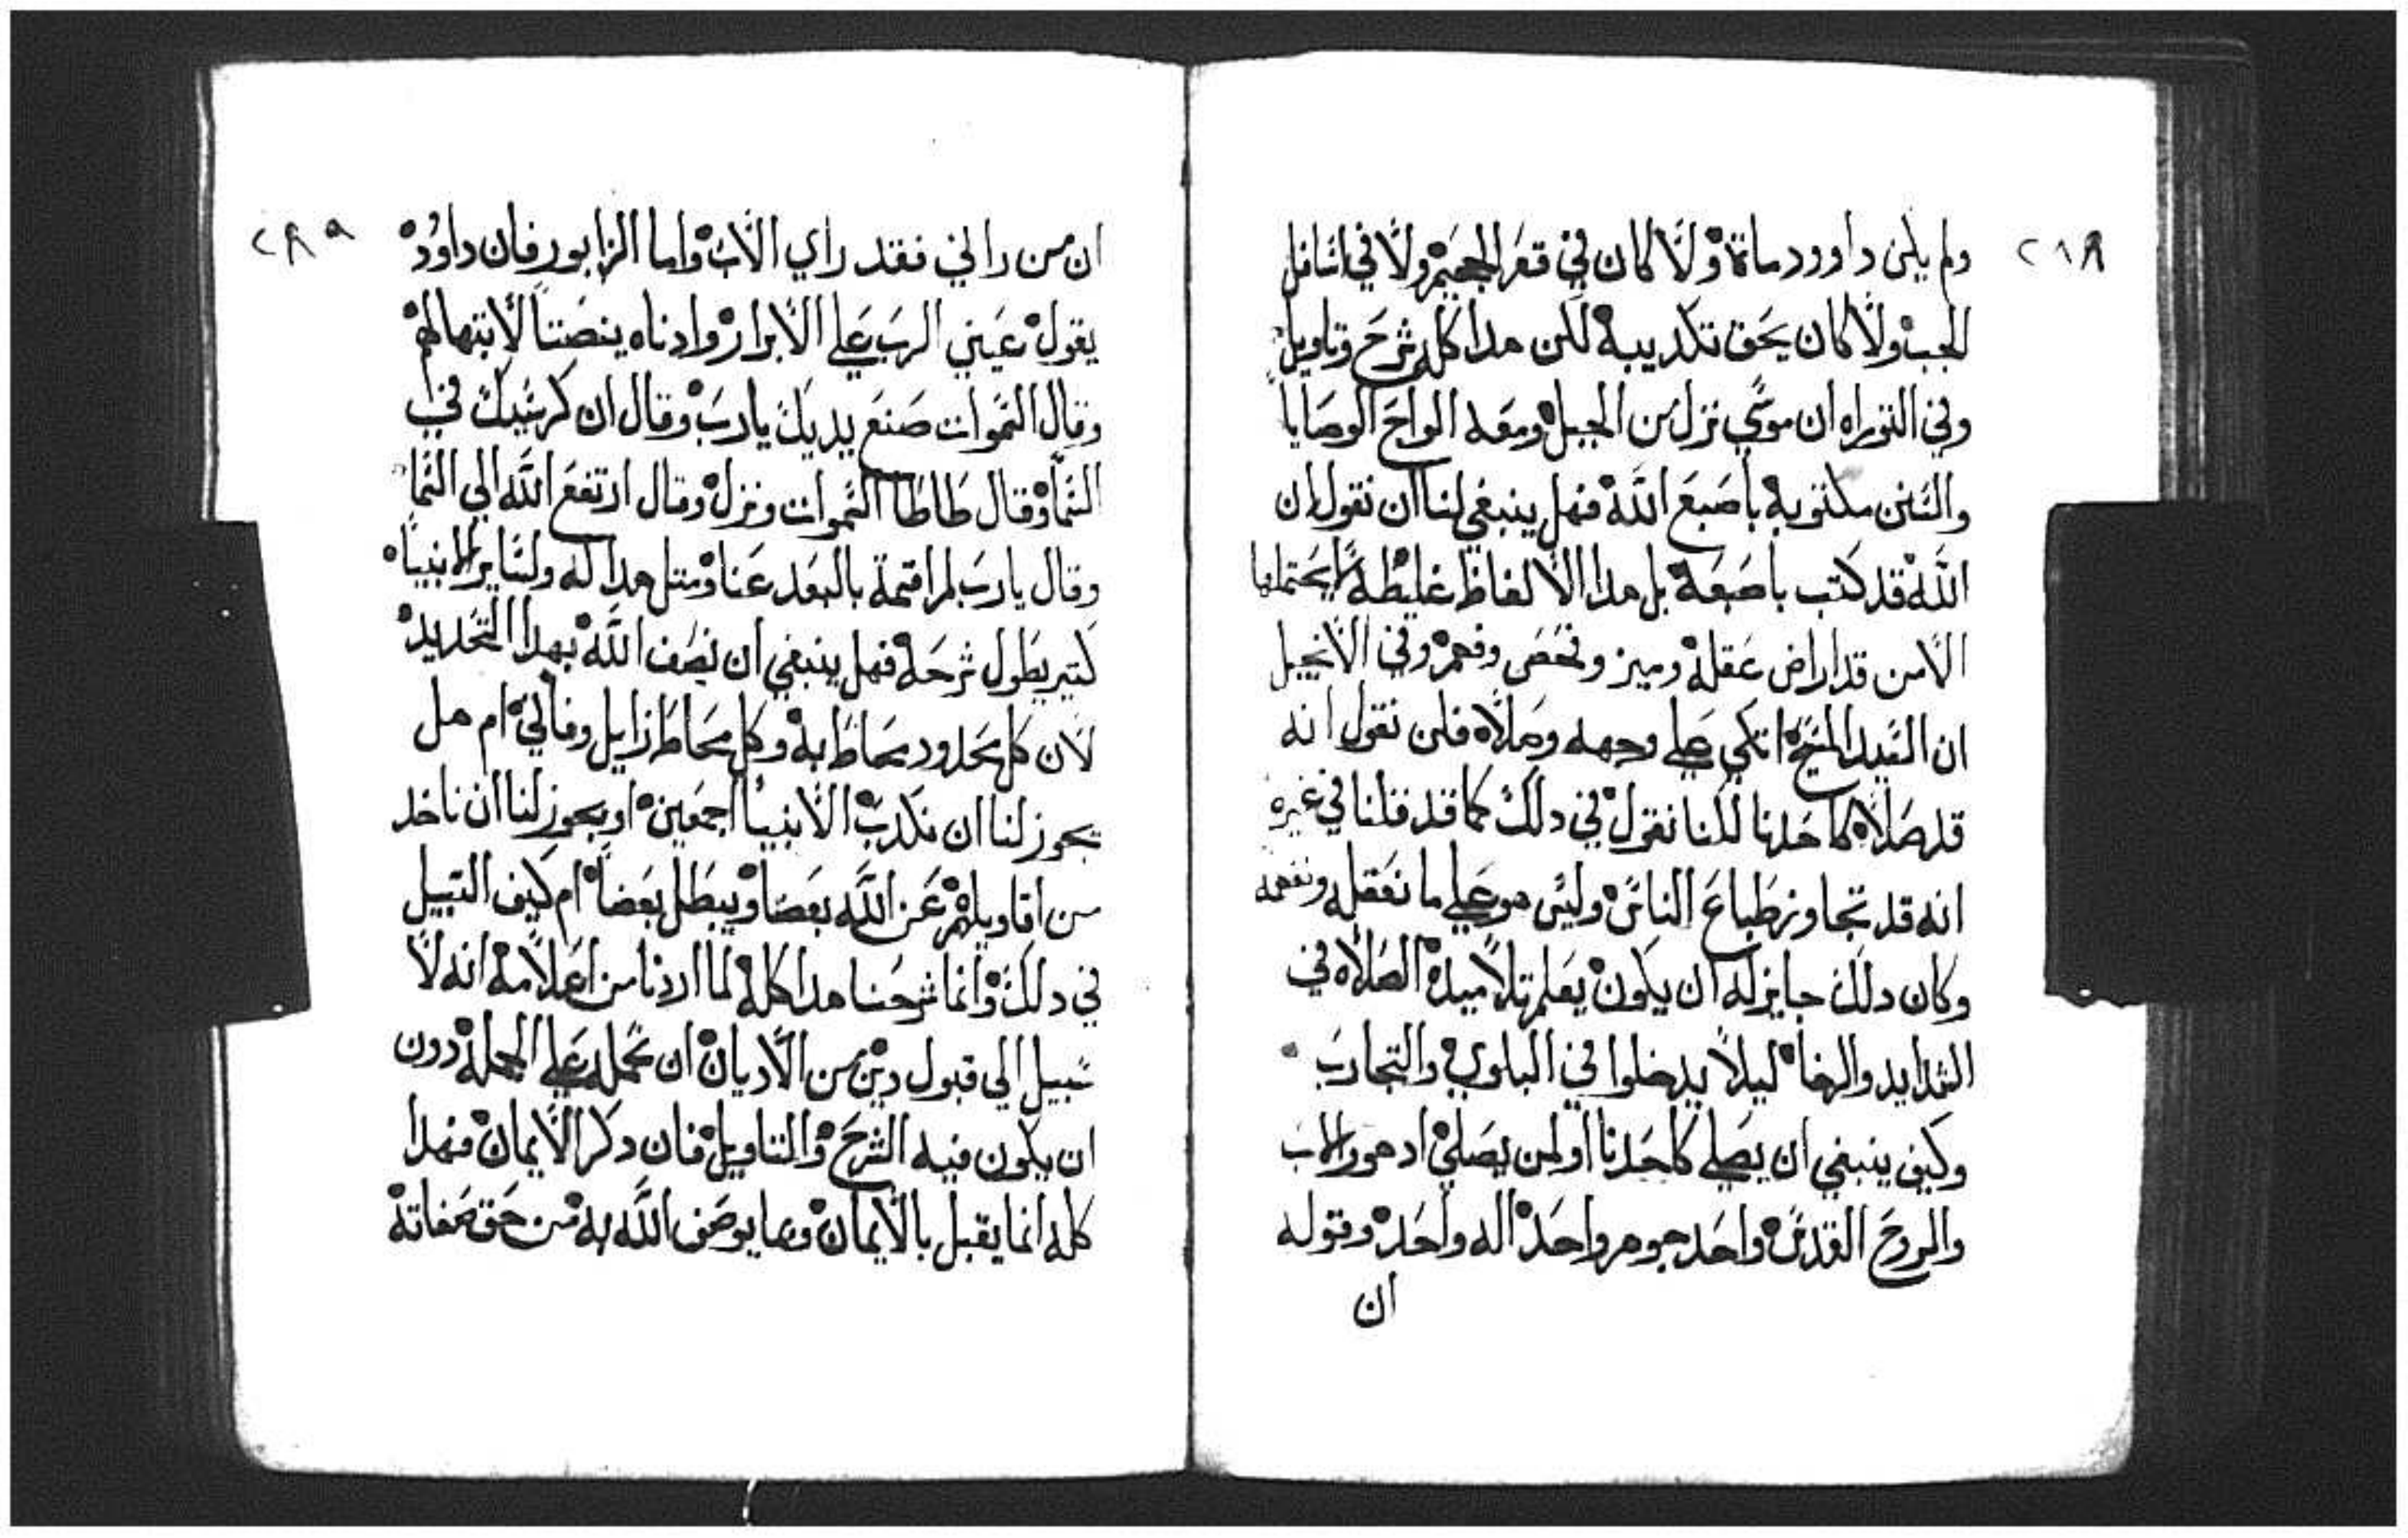 ٢٨٨
ولم يكن داوود ماة ولا كان في قعر الجحيم ولا في اسافل
الجب ولا كان يحق تكديبه لكن هدا كله شرح وتاويل
وفي التوراه ان موسي نزل من الجبل ومعه الواح الوصايا
والسنن مكتوبه باصبع الله فهل ينبغي لنا ان نقول ان
الله قد كتب باصبعه بل هدا الالفاظ غليظة لا يحتملها
الا من قد اراض عقله وميز وفحص وفهم وفي الانجيل
ان السيد المسيح اتكي علي وجهه وصلاه فلن نقول انه
قد صلاه كاحدنا لكننا نقول في دلك كما قد قلنا في غيره
انه قد تجاوز طباع الناس وليس هو علي ما نعقله ونفهمه
وكان دلك جايز له ان يكون يعلم تلاميده الصلاه في
الشدايد والرخا ليلا يدخلوا في البلوي والتجارب
وكيف ينبغي ان يصلي كاحدنا او لمن يصلي اد هو والاب
والروح القدس واحد جوهر واحد اله واحد وقوله
ان
٢٨٩
ان من راني فقد راي الاب واما الزابور فان داوود
يقول عيني الرب علي الابرار وادناه ينصتنا لابتهالهم
وقال السموات صنع يديك يارب وقال ان كرسيك في
السما وقال طاطا السموات ونزل وقال ارتفع الله الي السما
وقال يارب لم اقمة بالبعد عنا ومتل هدا له ولساير الانبيا
كتير يطول شرحه فهل ينبغي ان نصف الله بهدا التحديد
لان كل محدود محاط به وكل محاط زايل وفاني ام هل
يجوز لنا ان نكدب الانبيا اجمعين او يجوز لنا ان ناخد
من اقاويلهم عن الله بعضا ويبطل بعضا ام كيف السبيل
في دلك وانما شرحنا هدا كله لما اردنا من اعلامه انه لا
سبيل الي قبول دين من الاديان ان تحمله علي الجمله دون
ان يكون فيه الشرح والتاويل فان دكر الايمان فهدا
كله انما يقبل بالايمان وما يوصف الله به من حق صفاته